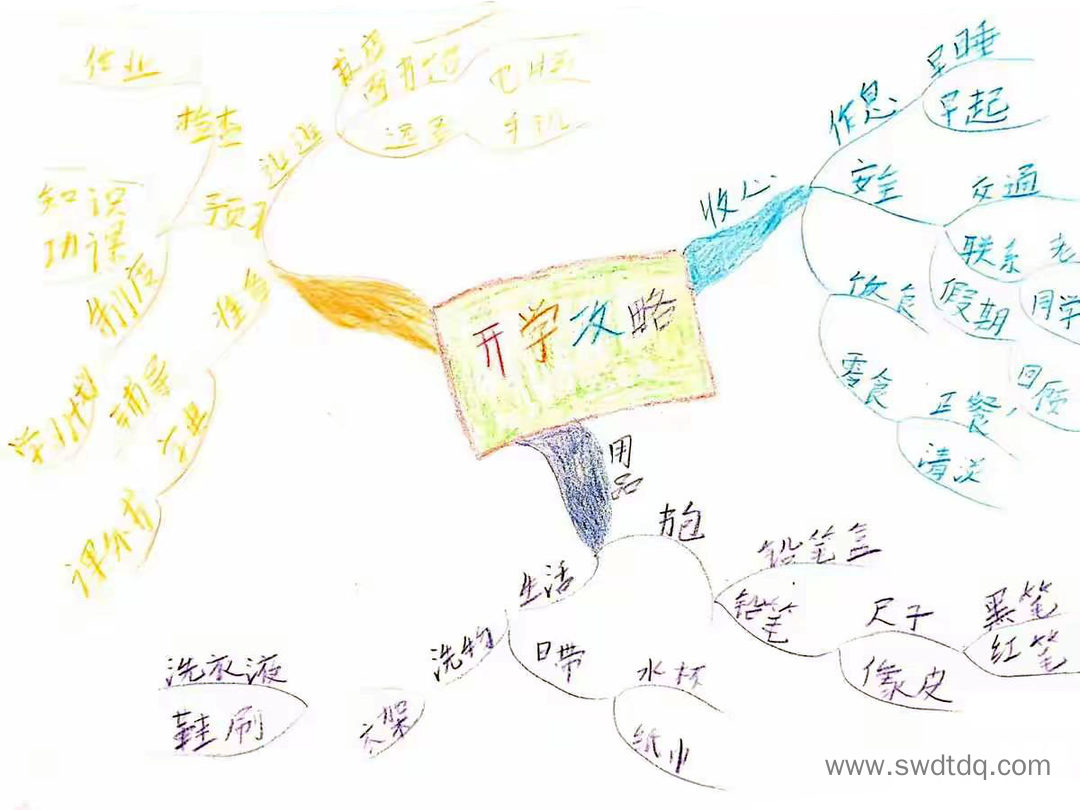 开学攻略
收心
作息
早睡
早起
安全
交通
联系
老
同学
假期
回顾
饮食
零食
正餐,
清淡
用品
书包
铅笔盒
铅笔
尺子
橡皮
黑笔
红笔
生活
日带
水杯
纸巾
洗物
衣架
洗衣液
鞋刷
远离
手机
检查
作业
预习
知识
功课
准备
制度
学习计划
辅导
www.swdtdq.com